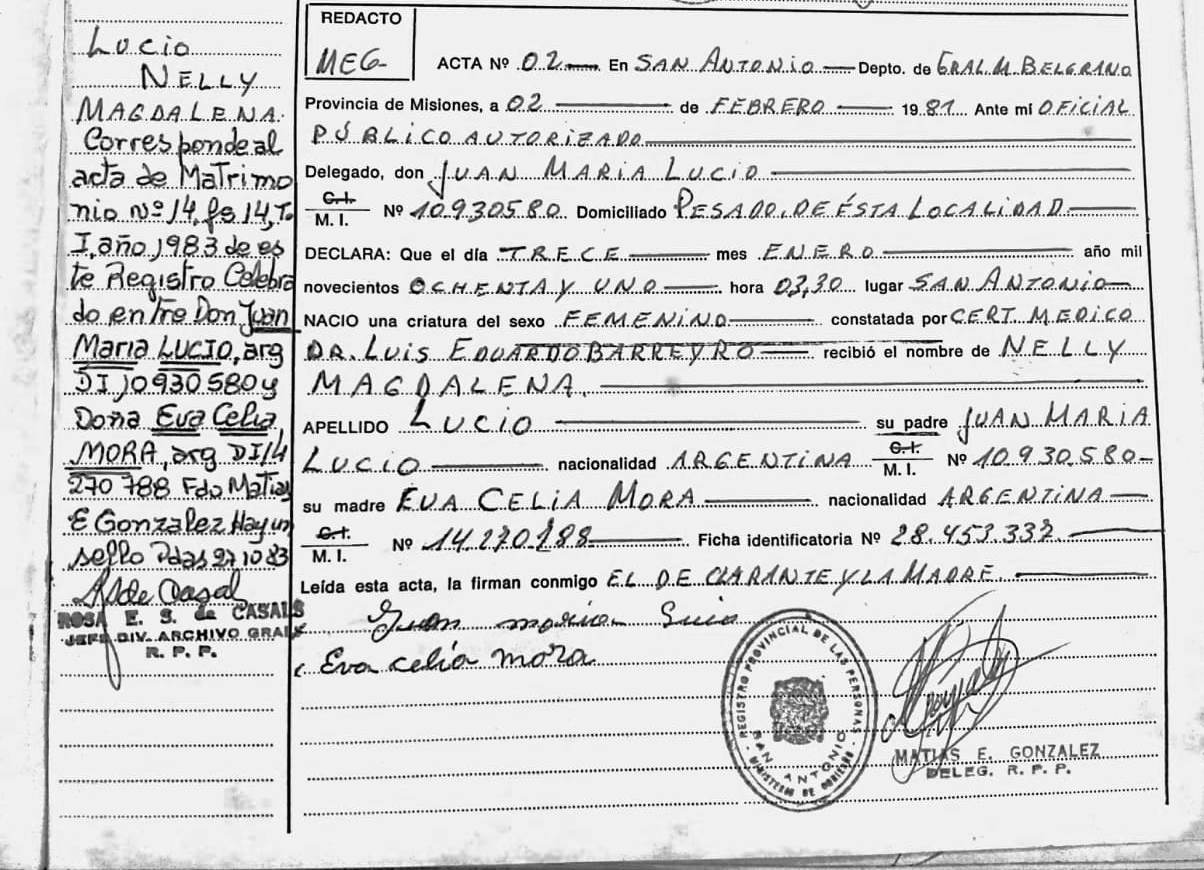 Lucio
NELLY
MAGDALENA.
Corresponde al
acta de Matrimo
nio Nº 14, fs 14, T.
I, año 1983 de es
te Registro Celebra
do entre Don Juan
Maria LUCIO, arg
DI 10930580 y
Doña Eva Celia
MORA, arg DI 14
270 788 Fdo Matias
E Gonzalez Hay un
sello Pdas 27 10 83
ROSA E. S. de CASALS
JEFE DIV. ARCHIVO GRAL
R. P. P.
REDACTO
MEG
ACTA Nº 02 En SAN ANTONIO Depto. de GRAL. M. BELGRANO
Provincia de Misiones, a 02 de FEBRERO 1981 Ante mí OFICIAL
PÚBLICO AUTORIZADO
Delegado, don JUAN MARIA LUCIO
C.I.
M. I. Nº 10930580 Domiciliado PESADO, DE ÉSTA LOCALIDAD
DECLARA: Que el día TRECE mes ENERO año mil
novecientos OCHENTA Y UNO hora 03,30 lugar SAN ANTONIO
NACIO una criatura del sexo FEMENINO constatada por CERT MEDICO
DR. LUIS EDUARDO BARREYRO recibió el nombre de NELLY
MAGDALENA.
APELLIDO LUCIO su padre JUAN MARIA
LUCIO nacionalidad ARGENTINA C.I. M. I. Nº 10.930.580
su madre EVA CELIA MORA nacionalidad ARGENTINA
C.I.
M. I. Nº 14.270.788 Ficha identificatoria Nº 28.453.337.
Leída esta acta, la firman conmigo EL DECLARANTE Y LA MADRE.
Juan maria Lucio
Eva celia mora
REGISTRO PROVINCIAL DE LAS PERSONAS
SAN ANTONIO
MINISTERIO DE GOBIERNO
MATIAS E. GONZALEZ
DELEG. R. P. P.